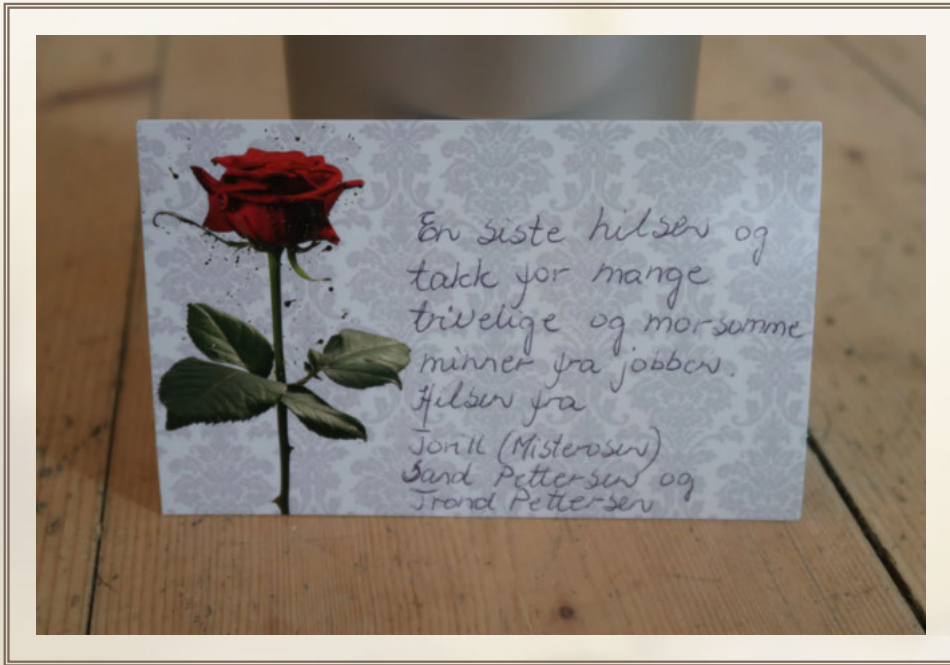 En siste hilsen og
takk for mange
trivelige og morsomme
minner fra jobben.
Hilsen fra
Torill (Misterosen)
Sand Pettersen og
Trond Pettersen